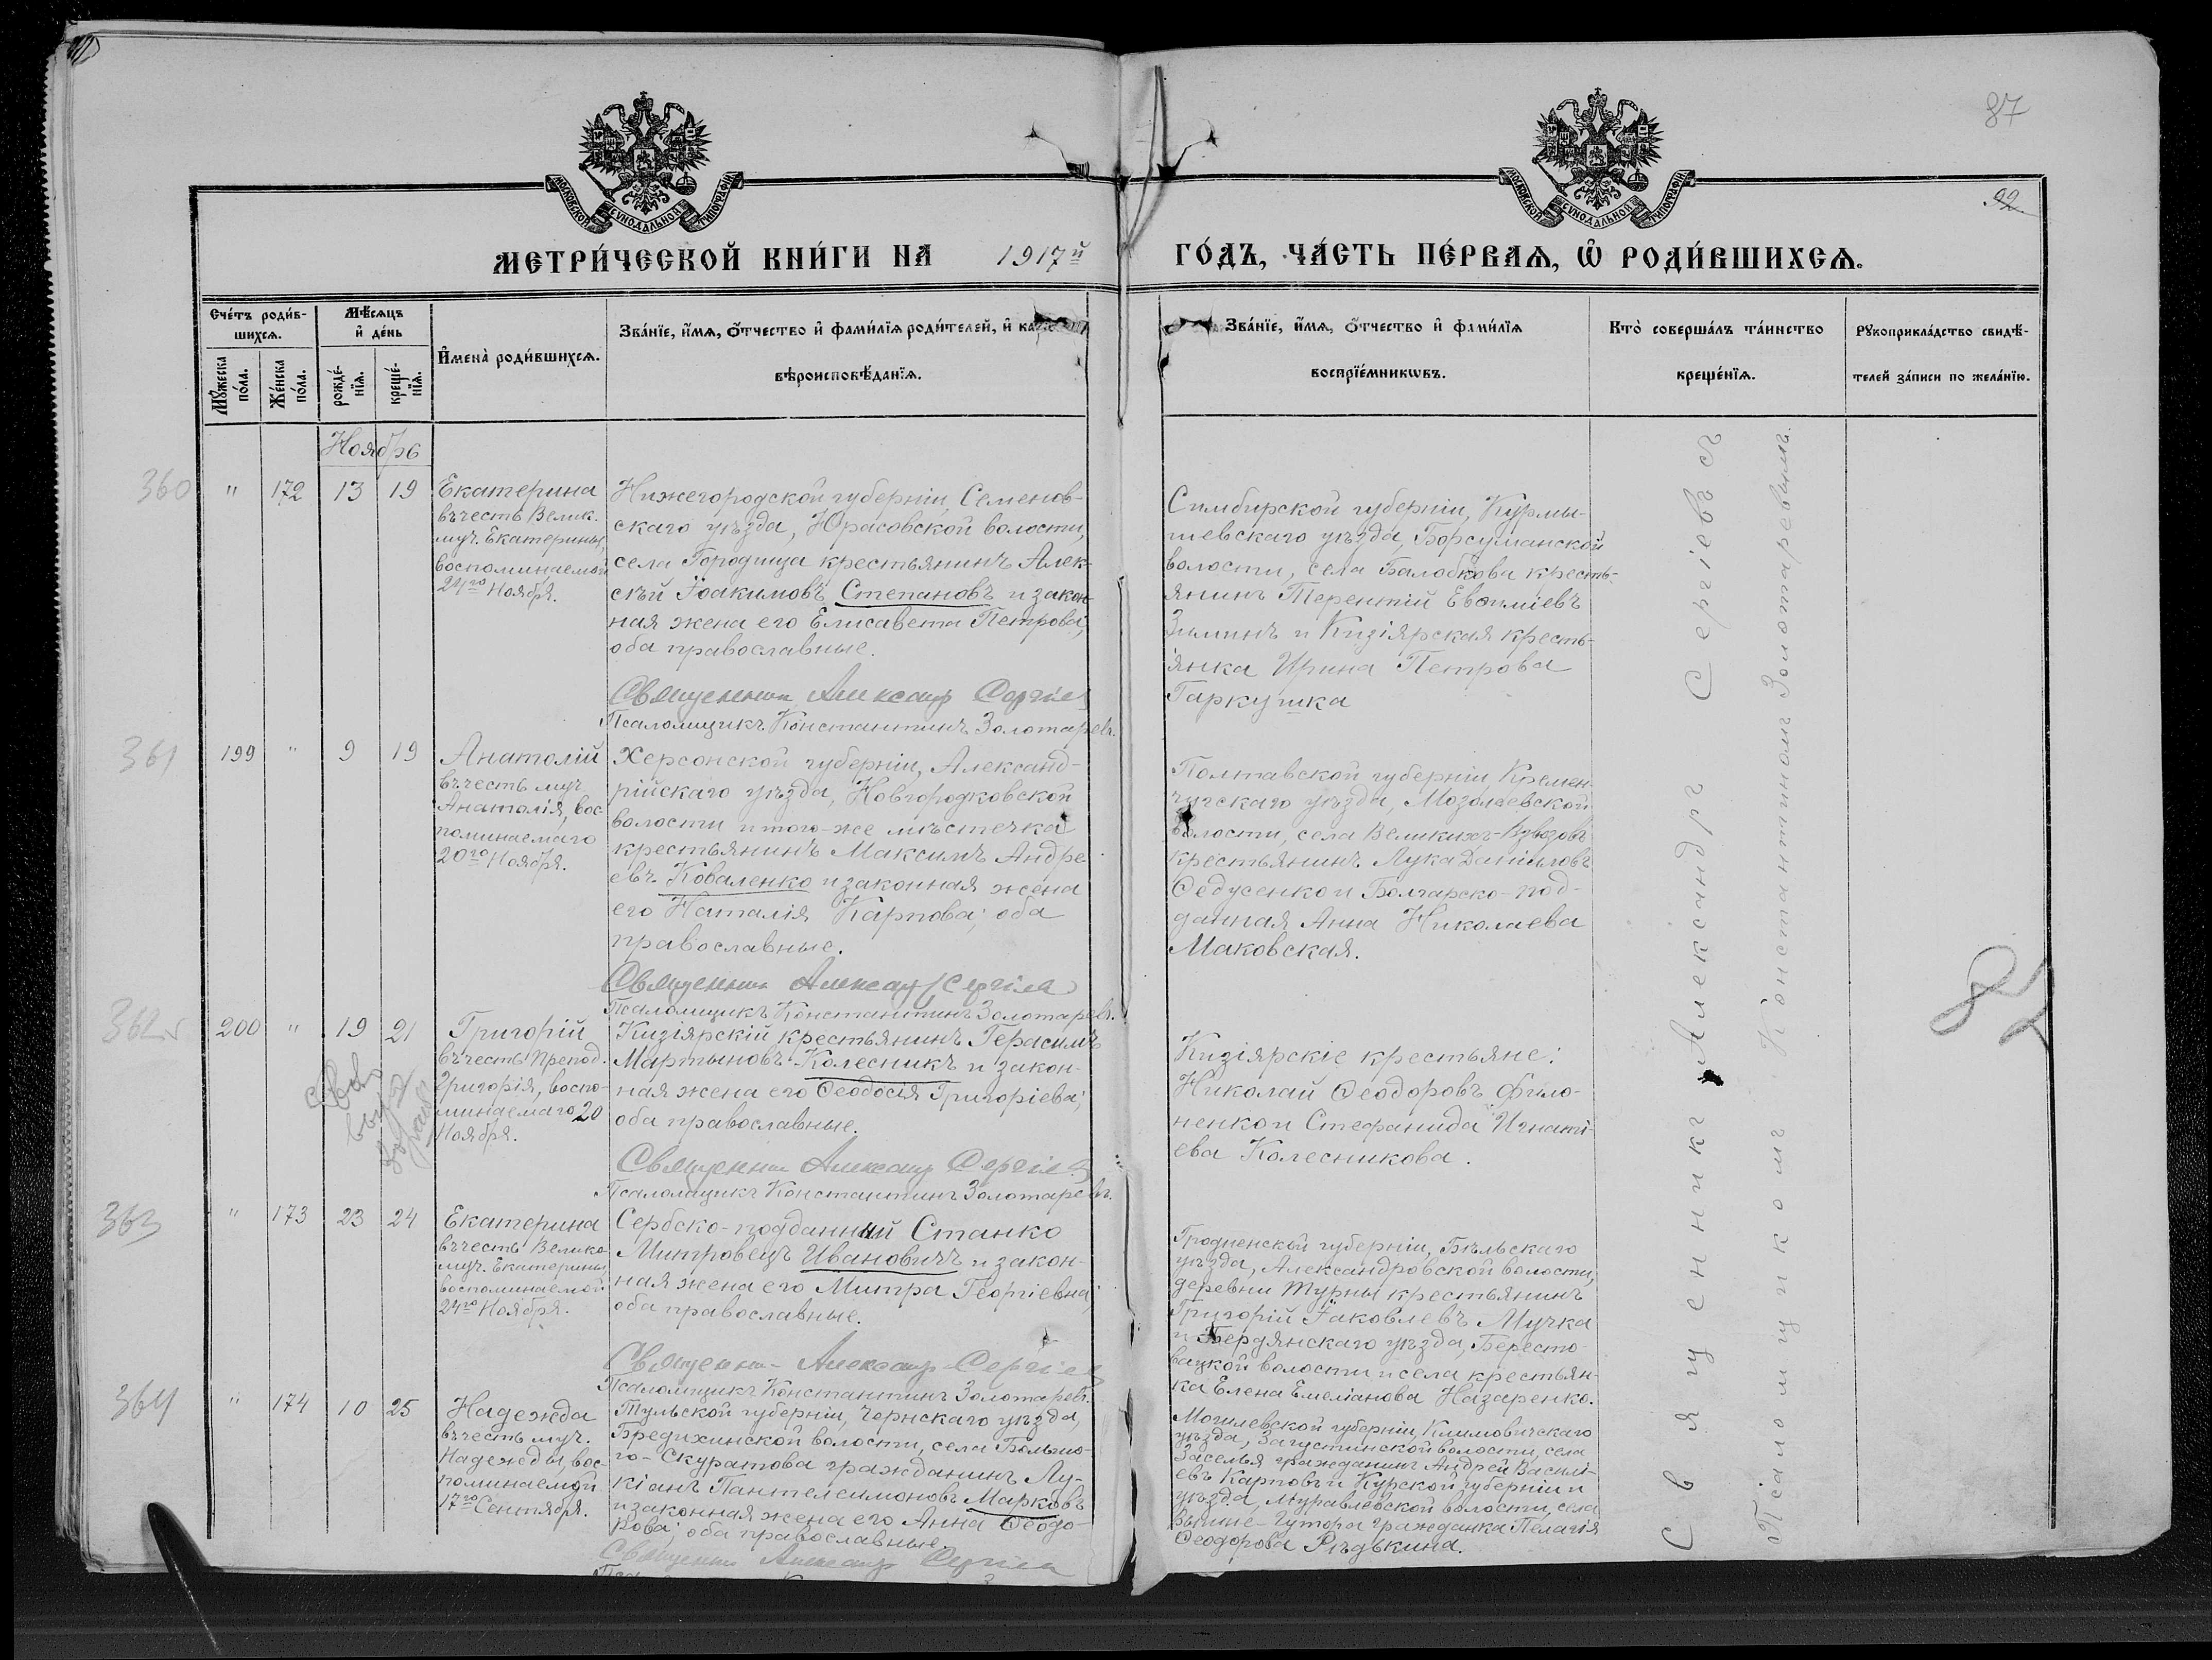 87
92
МОСКОВСКОЙ СѴНОДАЛЬНОЙ ТИПОГРАФІИ
МОСКОВСКОЙ СѴНОДАЛЬНОЙ ТИПОГРАФІИ
МЕТРИ́ЧЕСКОЙ КНИ́ГИ НА 1917й
ГО́ДЪ, ЧА́СТЬ ПЕ́РВАѦ, Ѿ РОДИ́ВШИХСѦ.
Сче́тъ роди́в-
шихсѧ.
Мꙋ́жеска
по́ла.
Же́нска
по́ла.
Мѣ́сѧцъ
и҆ де́нь
рожде́-
нїѧ.
креще́-
нїѧ.
И҆мена̀ роди́вшихсѧ.
Зва́нїе, и҆́мѧ, ѻ҆́тчество и҆ фами́лїѧ роди́телей, и҆
вѣроисповѣ́данїѧ.
Зва́нїе, и҆́мѧ, ѻ҆́тчество и҆ фами́лїѧ
воспрїе́мникѡвъ.
Кто̀ соверша́лъ та́инство
креще́нїѧ.
Рꙋкоприкла́дство свидѣ́-
телей за́писи по жела́нїю.
Ноябрь
360 " 172 13 19
Екатерина
въ честь Велик.
муч. Екатерины,
воспоминаемой
24го Ноября.
Нижегородской губерніи, Семенов-
скаго уѣзда, Юрасовской волости,
села Городища крестьянинъ Алек-
сѣй Іоакимовъ Степановъ и закон-
ная жена его Елисавета Петрова,
оба православные.
Священник Александр Сергіев
Псаломщикъ Константинъ Золотаревъ.
Симбирской губерніи, Курмы-
шевскаго уѣзда, Борсуманской
волости, села Балобкова кресть-
янинъ Терентій Евѳиміевъ
Зиминъ и Кизіярская кресть-
янка Ирина Петрова
Гаркушка
361 199 " 9 19
Анатолій
въ честь муч.
Анатолія, вос-
поминаемаго
20го Ноября.
Херсонской губерніи, Александ-
рійскаго уѣзда, Новгородковской
волости и того-же мѣстечка
крестьянинъ Максимъ Андре-
евъ Коваленко и законная жена
его Наталія Карпова; оба
православные.
Священник Александр Сергіев
Псаломщикъ Константинъ Золотаревъ.
Полтавской губерніи, Кремен-
чугскаго уѣзда, Мозолеевской
волости, села Великихъ-Взвозовъ
крестьянинъ Лука Даніиловъ
Ѳедусенко и Болгарско-под-
данная Анна Николаева
Маковская.
362 200 " 19 21
Григорій
въ честь Препод.
Григорія, воспо-
минаемаго 20
Ноября.
Кизіярскій крестьянинъ Герасимъ
Мартыновъ Колесникъ и закон-
ная жена его Ѳеодосія Григоріева;
оба православные.
Священник Александр Сергіев
Псаломщикъ Константинъ Золотаревъ.
Кизіярскіе крестьяне:
Николай Ѳеодоровъ Фило-
ненко и Стефанида Игнаті-
ева Колесникова.
82
363 " 173 23 24
Екатерина
въ честь Велико-
муч. Екатерины
воспоминаемой
24го Ноября.
Сербско-подданный Станко
Митровецъ Ивановичъ и закон-
ная жена его Митра Георгіевна;
оба православные.
Священник Александр Сергіев
Псаломщикъ Константинъ Золотаревъ.
Гродненской губерніи, Бѣльскаго
уѣзда, Александровской волости,
деревни Турны крестьянинъ
Григорій Іаковлевъ Мучка
и Бердянскаго уѣзда, Бересто-
вацкой волости и села крестьян-
ка Елена Емеліанова Назаренко.
364 " 174 10 25
Надежда
въ честь муч.
Надежды вос-
поминаемой
17го Сентября.
Тульской губерніи, Чернскаго уѣзда,
Бредихинской волости, села Большо-
го-Скуратова гражданинъ Лу-
кіанъ Пантелеимоновъ Марковъ
и законная жена его Анна Ѳеодо-
рова; оба православные.
Священник Александр Сергіев
Могилевской губерніи, Климовичскаго
уѣзда, Загустинской волости, села
Заселья гражданинъ Андрей Василі-
евъ Карповъ и Курской губерніи и
уѣзда, Муравлевской волости, села
Вышне-Гутора гражданка Пелагія
Ѳеодорова Рѣдькина.
Священникъ Александръ Сергіевъ съ
Псаломщикомъ Константиномъ Золотаревымъ.